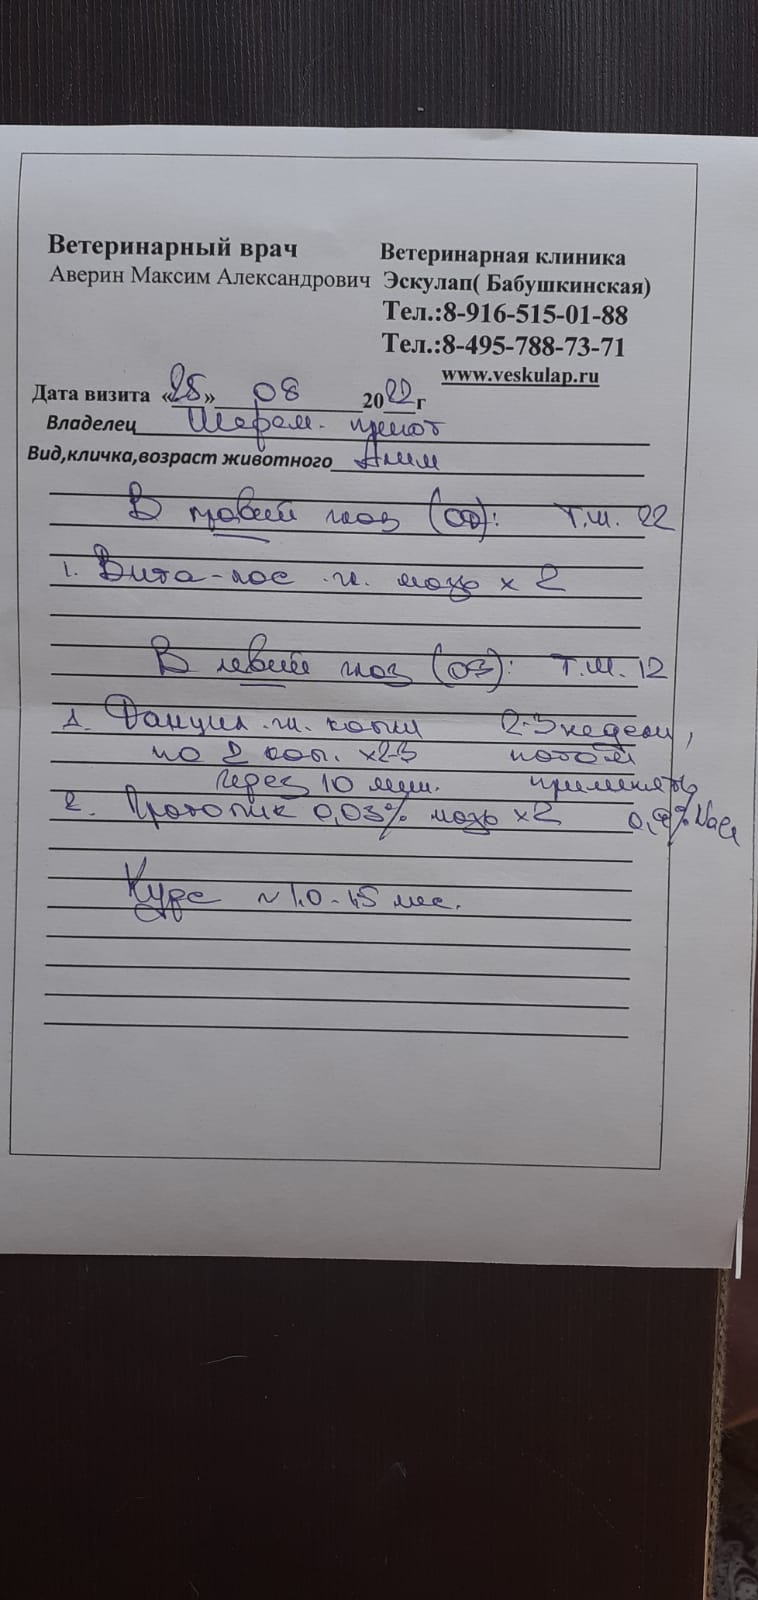 Ветеринарный врач
Аверин Максим Александрович
Ветеринарная клиника
Эскулап( Бабушкинская)
Тел.:8-916-515-01-88
Тел.:8-495-788-73-71
www.veskulap.ru
Дата визита «25» 08 2022г
Владелец
Вид,кличка,возраст животного
В правый глаз (OD): Т.Ш. 22
1. Вита-пос гл. мазь х 2
В левый глаз (OS): Т.Ш. 12
1. гл. капли 2-3 недели,
по 2 кап. х2-3 потом
через 10 мин. применять
2. Протопик 0,03% мазь х2 0,9% NaCl
Курс ~ 1,0-1,5 мес.